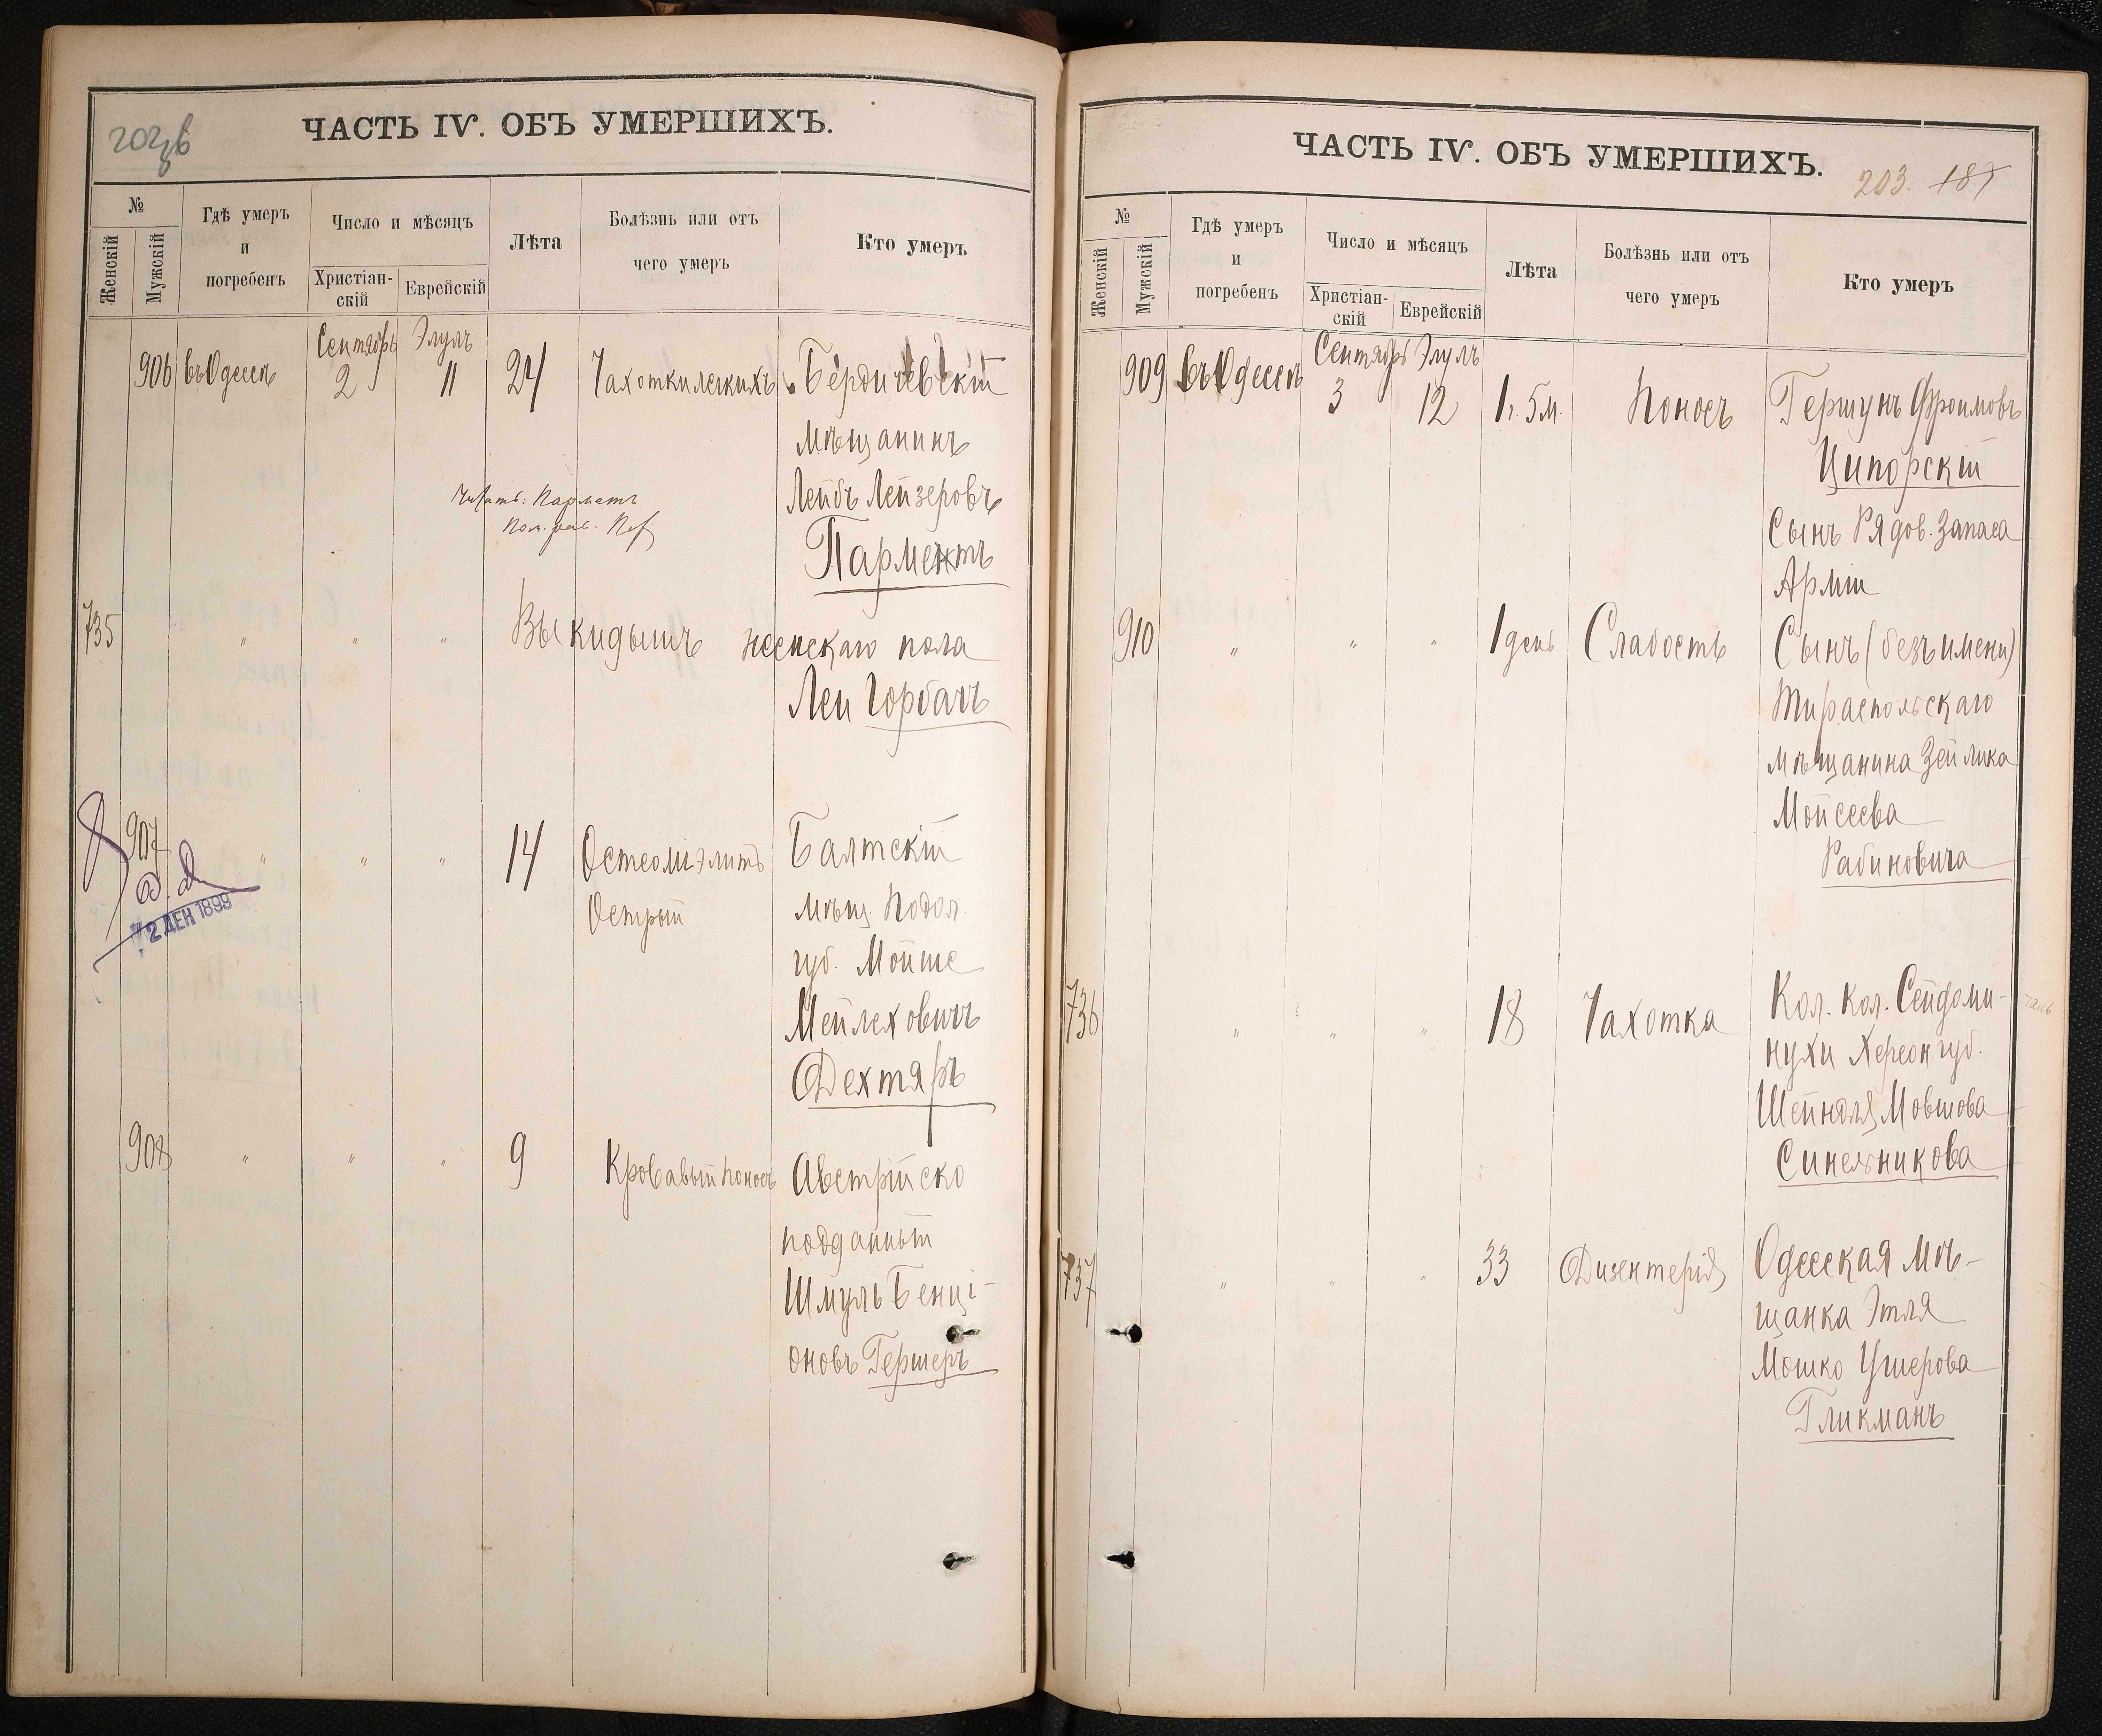 ЧАСТЬ IV. ОБЪ УМЕРШИХЪ.
№
Женскій
Мужскій
Гдѣ умеръ
и
погребенъ
Число и мѣсяцъ
Христіан-
скій
Еврейскій
Лѣта
Болѣзнь или отъ
чего умеръ
Кто умеръ
Сентябрь Элулъ
906 въ Одессѣ 2 11 24 Чахотки легкихъ Бердичевскій
мѣщанинъ
Лейбъ Лейзеровъ
Парментъ
Читать: Парметъ
735 " " " Выкидышъ женскаго пола
Леи Горбачъ
907 " " " 14 Остеоміэлитъ Балтскій
Острый мѣщ. Подол.
губ. Мойше
Мейлеховичъ
Дехтяръ
2 ДЕК 1899
908 " " " 9 Кровавый поносъ Австрійско
подданный
Шмуль Бенці-
оновъ Гершеръ
ЧАСТЬ IV. ОБЪ УМЕРШИХЪ.
203. 187
№
Женскій
Мужскій
Гдѣ умеръ
и
погребенъ
Число и мѣсяцъ
Христіан-
скій
Еврейскій
Лѣта
Болѣзнь или отъ
чего умеръ
Кто умеръ
Сентябрь Элулъ
909 въ Одессѣ 3 12 1 г. 5 м. Поносъ Гершунъ Фроимовъ
Ципорскій
Сынъ Рядов. Запаса
Арміи
910 " " " 1 день Слабость Сынъ (безъ имени)
Тираспольскаго
мѣщанина Зейлика
Мойсеева
Рабиновича
736 " " " 18 Чахотка Кол. Кол. Сейдеми-
нухи Херсон. губ.
Шейндля Мовшова
Синельникова
737 " " " 33 Дизентерія Одесская мѣ-
щанка Этля
Мошко Ушерова
Гликманъ